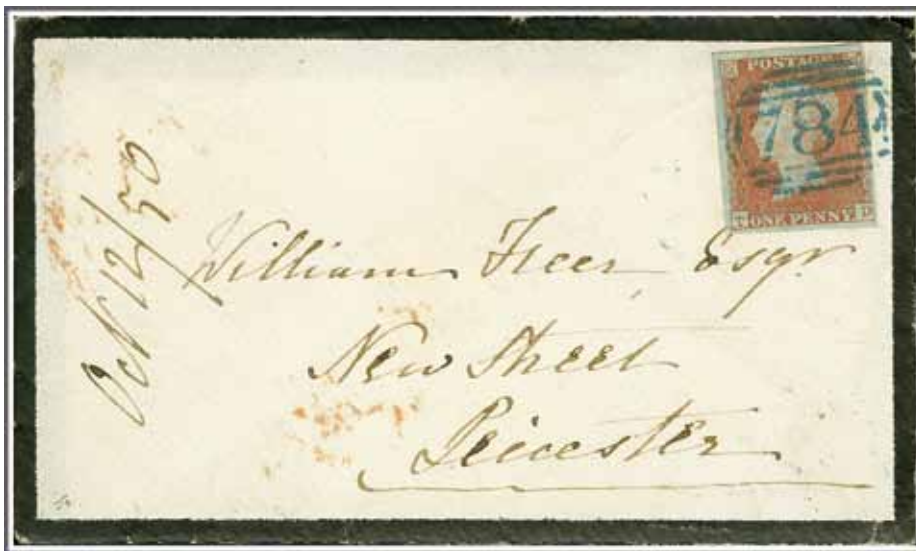 POSTAGE
784
T ONE PENNY D
Oct 12/50
William Freer Esqr
New Street
Leicester